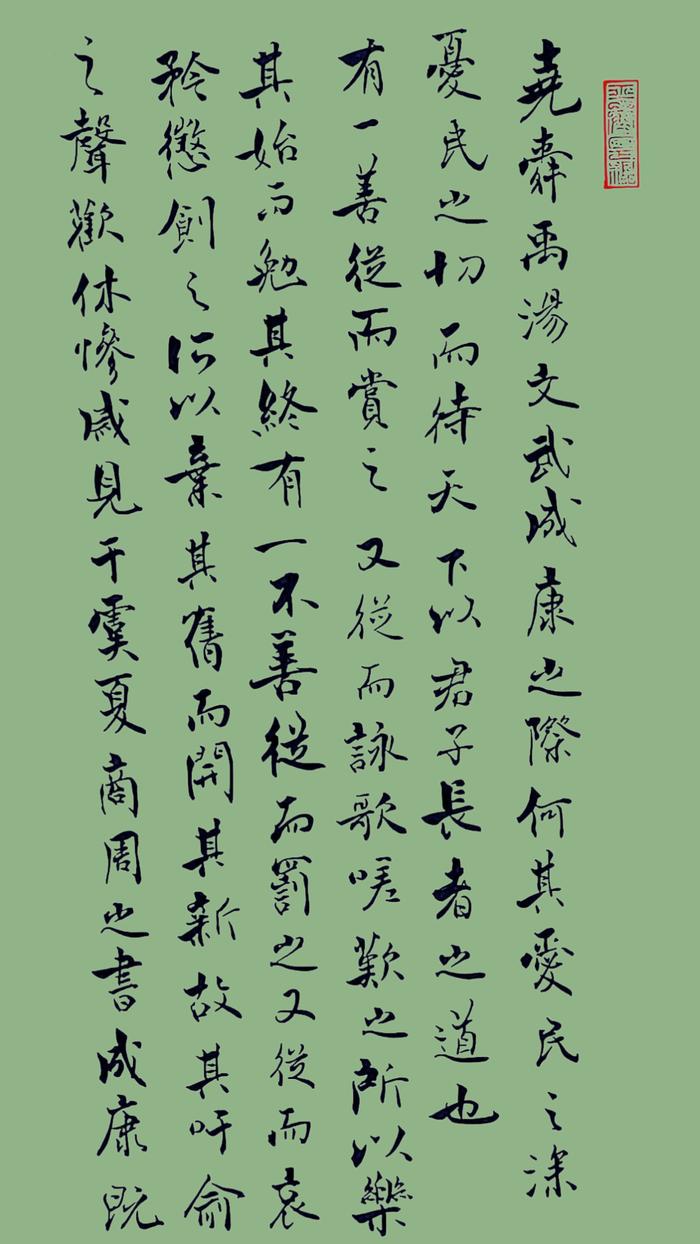 堯舜禹湯文武成康之際何其愛民之深
憂民之切而待天下以君子長者之道也
有一善從而賞之又從而詠歌嗟歎之所以樂
其始而勉其終有一不善從而罰之又從而哀
矜懲創之所以棄其舊而開其新故其吁俞
之聲歡休慘戚見于虞夏商周之書成康既